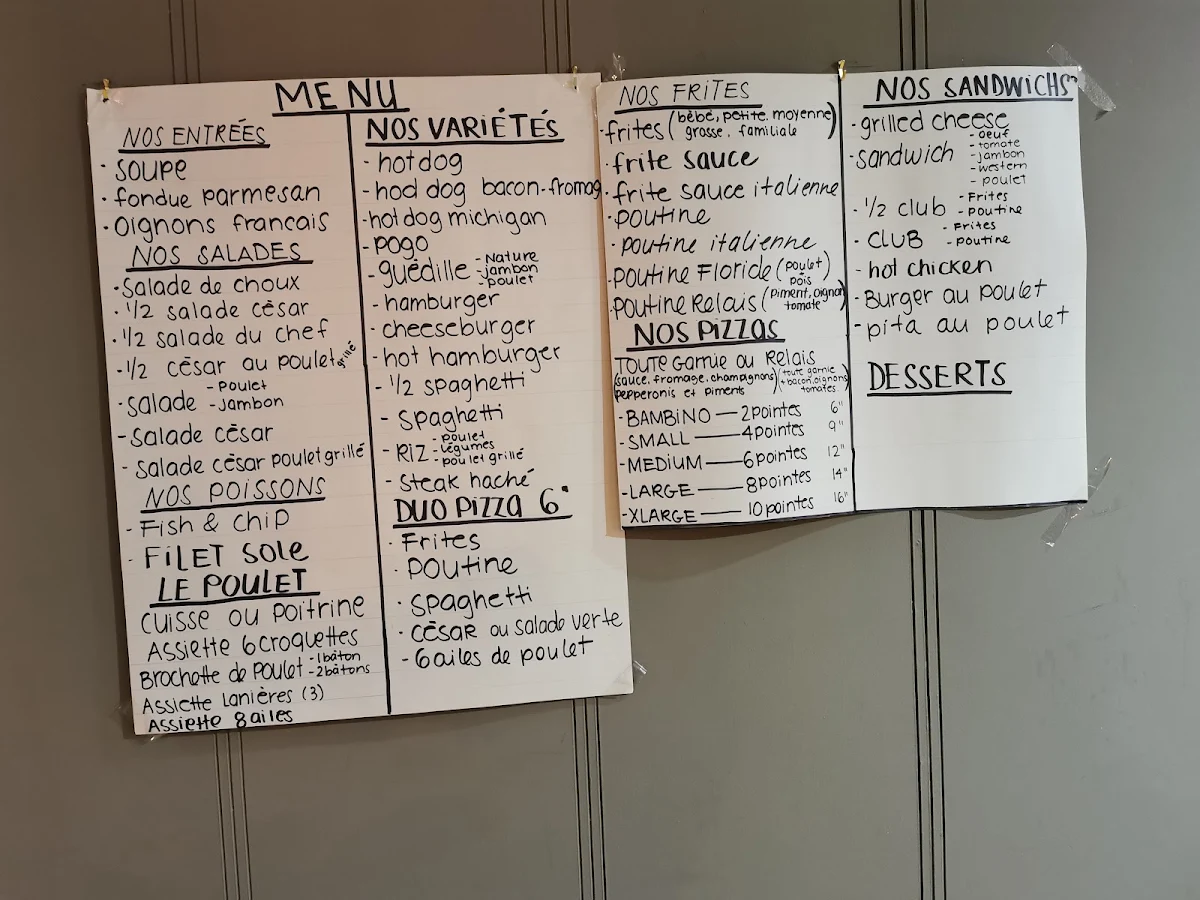 MENU
NOS ENTRÉES
· SOUPE
· fondue parmesan
· Oignons francais
NOS SALADES
· Salade de choux
· 1/2 salade cèsar
· 1/2 salade du chef
- 1/2 césar au poulet grillé
· salade - Poulet
- Jambon
- Salade cèsar
- Salade césar poulet grillé
NOS POISSONS
- Fish & chip
· FILET SOLE
LE POULET
Cuisse ou Poitrine
Assiette 6 croquettes
Brochette de Poulet - 1 bâton
- 2 bâtons
Assiette Lanières (3)
Assiette 8 ailes
NOS VARIÉTÉS
· hotdog
- hod dog bacon-fromag
- hotdog michigan
- pogo
- guédille - Nature
- jambon
- poulet
- hamburger
- cheeseburger
- hot hamburger
- 1/2 spaghetti
- Spaghetti
- RIZ - poulet
- légumes
- poulet grillé
- Steak haché
DUO PIZZA 6"
· Frites
· POUTINE
· Spaghetti
· CÈSAR ou salade verte
- 6 ailes de poulet
NOS FRITES
· frites (bébé, petite, moyenne
grosse, familiale)
· frite sauce
· frite sauce italienne
· POUTINE
· poutine italienne
· POUTINE FLORIDE (poulet
pois)
· POUTINE RELAIS (Piment, oignon
tomate)
NOS PIZZAS
TOUTE Garnie ou Relais
(sauce, fromage, champignons
pepperonis et Piments) (toute garnie
+ bacon, oignons
tomates)
- BAMBINO — 2 pointes 6"
- SMALL — 4 pointes 9"
- MEDIUM — 6 pointes 12"
- LARGE — 8 pointes 14"
- XLARGE — 10 pointes 16"
NOS SANDWICHS
· grilled cheese
· sandwich - oeuf
- tomate
- jambon
- western
- poulet
· 1/2 club - Frites
- Poutine
· CLUB - Frites
- Poutine
- hot chicken
- Burger au poulet
- pita au poulet
DESSERTS